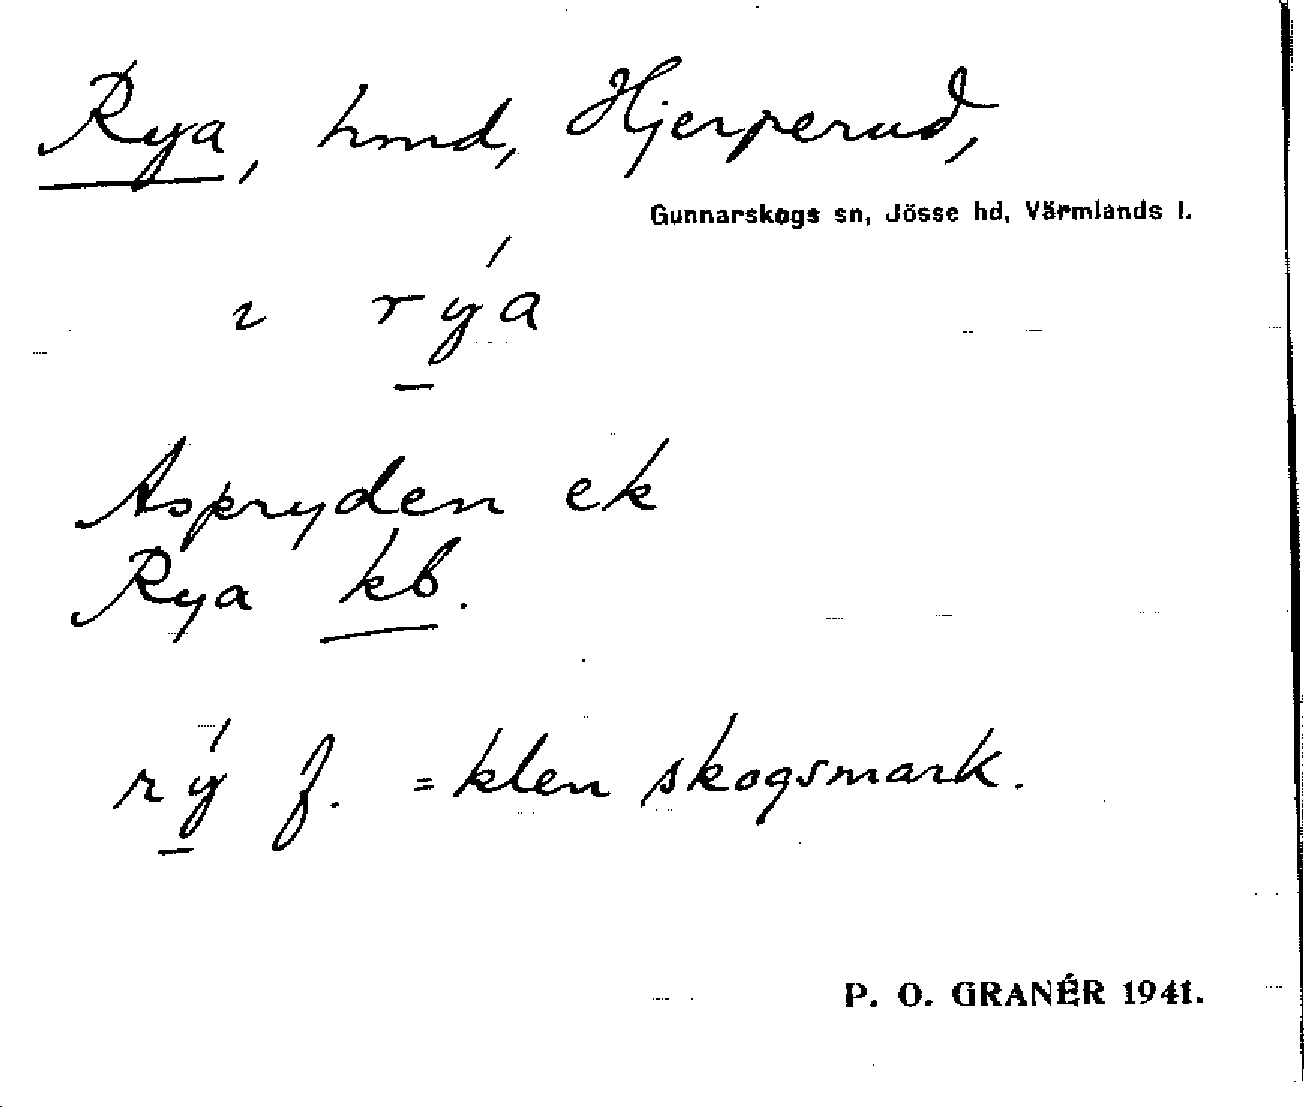 Rya, hmd, Hjerperud,
Gunnarskogs sn, Jösse hd, Värmlands l.
2 rýa
Aspryden ek
Rya kb.
rý f. = klen skogsmark.
P. O. GRANÉR 1941.